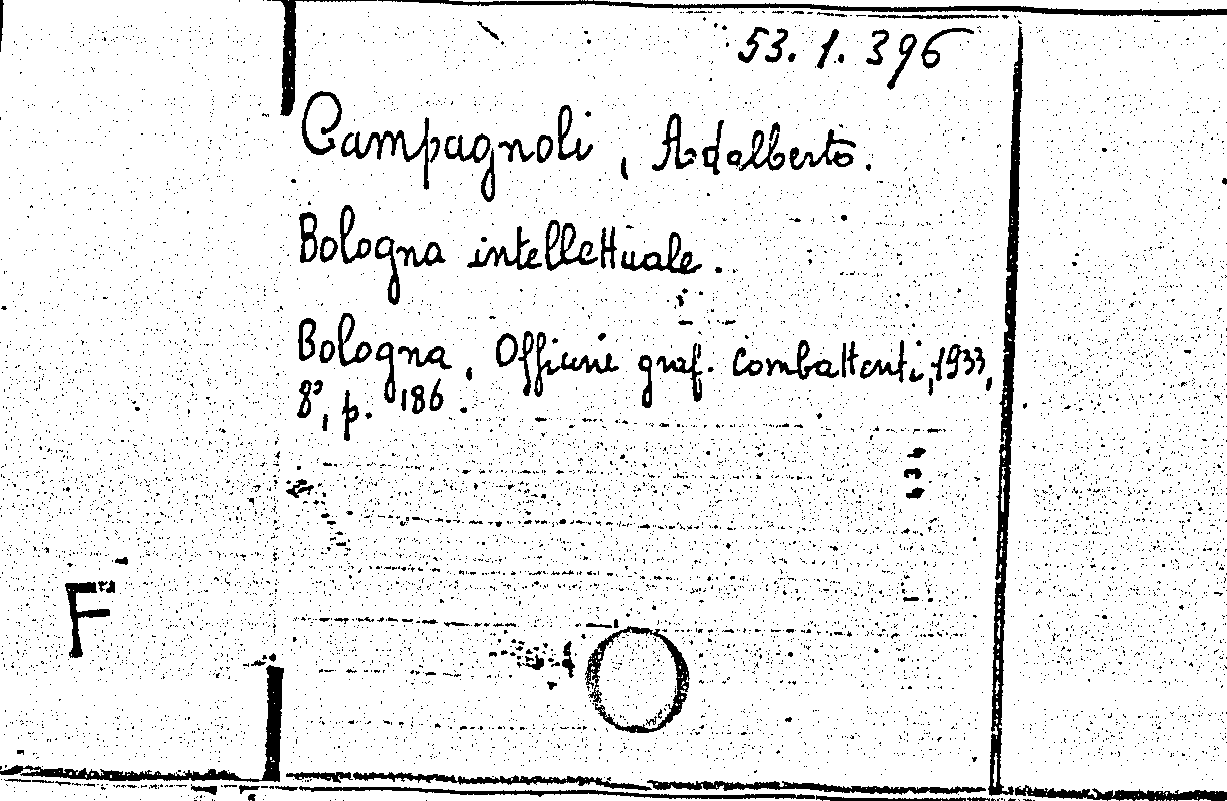 53. 1. 396
Campagnoli, Adalberto.
Bologna intellettuale.
Bologna, Officine graf. Combattenti, 1933,
8°, p. 186.
F